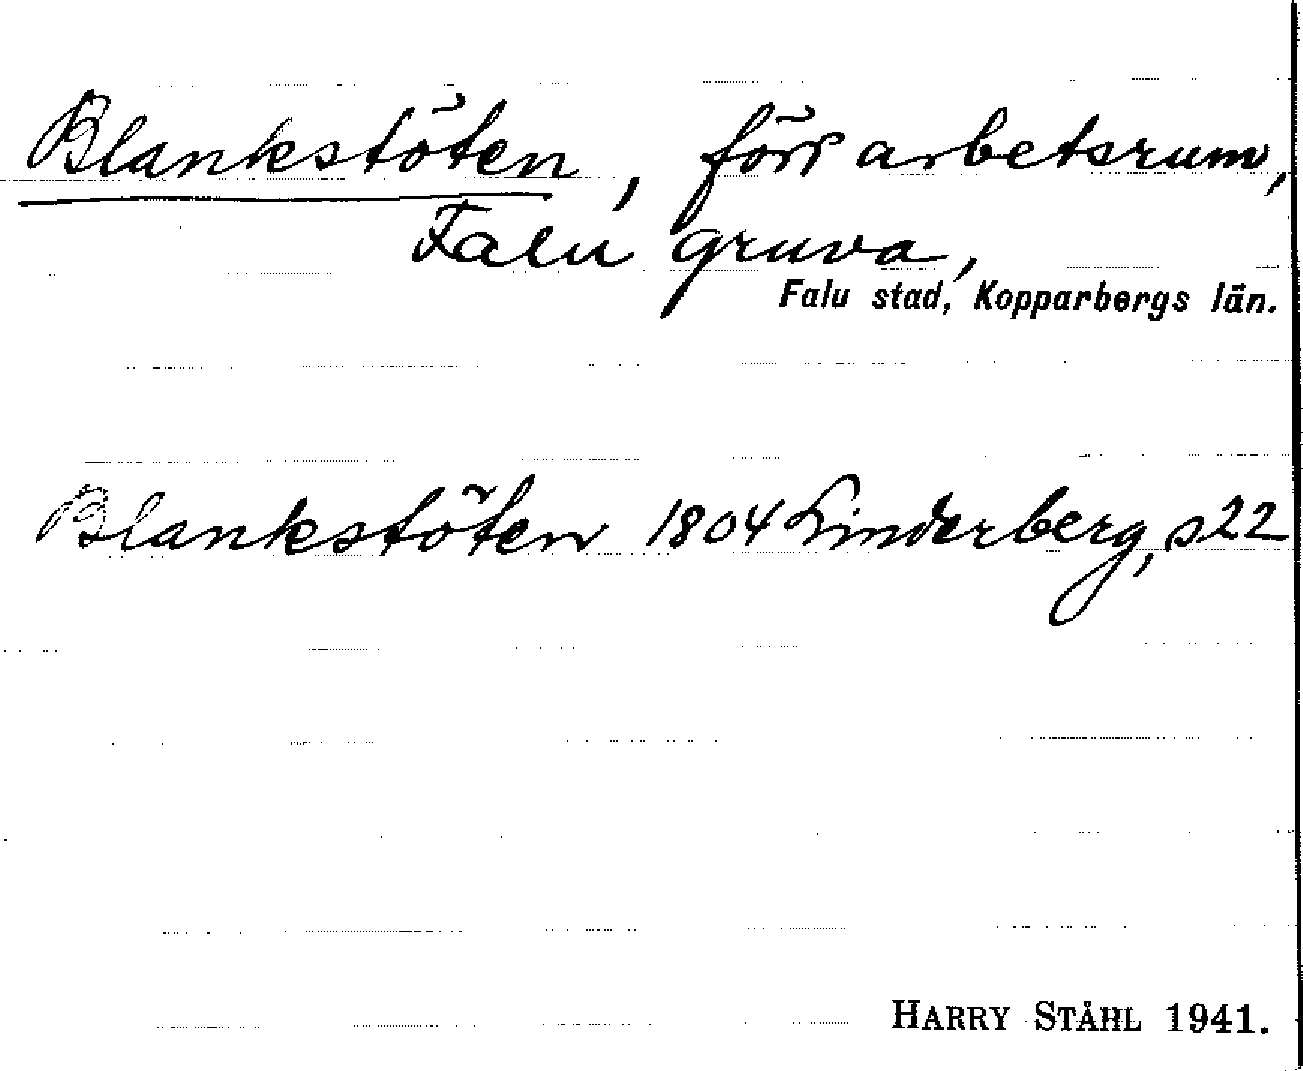 Blankstöten, förr arbetsrum,
Falu gruva,
Falu stad, Kopparbergs län.
Blankstöten 1804 Linderberg, s 22
HARRY STÅHL 1941.